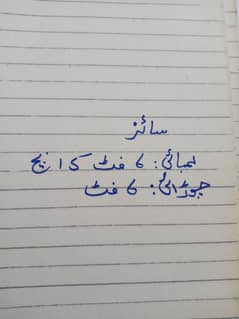 سائز
لمبائی: 6 فٹ 5 انچ
چوڑائی: 6 فٹ